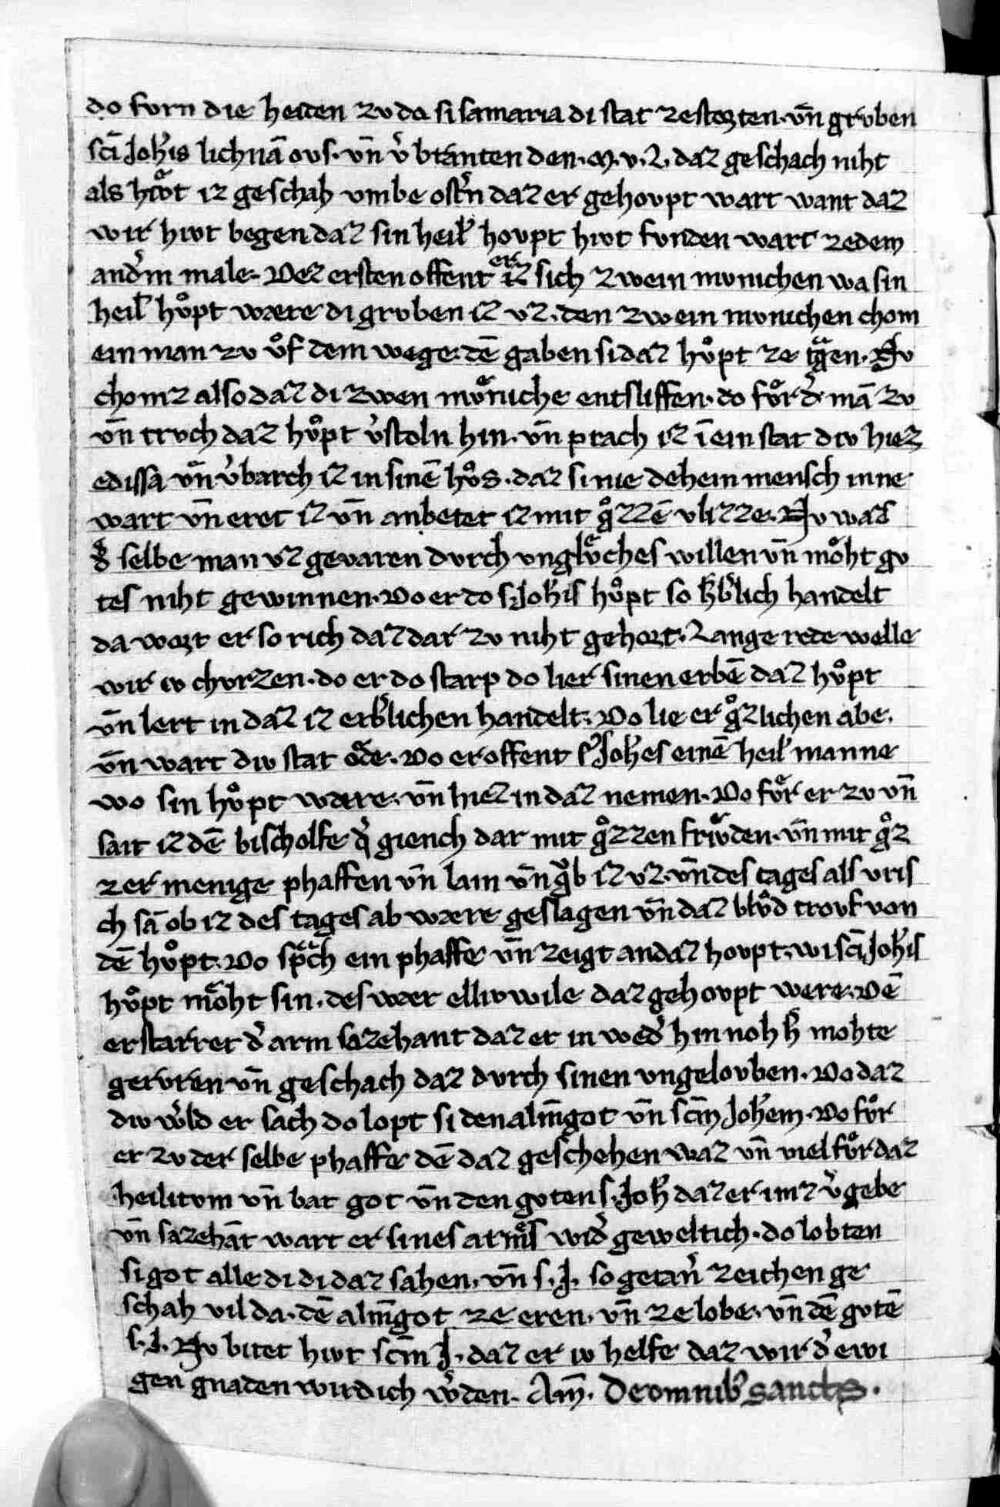 do forn die heiten zv do si samaria di stat zestorten. vn̄ grvben
sc̄i Joh̄is lichnā ovs. vn̄ v̾branten den. M. v. L. daz geschach niht
als hiv̊t iz geschah vmbe ost̾n daz er gehovpt wart want daz
wir hivt begen daz sin heil̾ hovpt hivt fvnden wart zedem
and̾m male. Dez ersten offent er iz sich zwein mvnichen wa sin
heil̾ hoͮpt wære di grvben iz vz. den zwein mvnichen chom
ein man zv vͦf dem wege. dē gaben si daz hoͮpt ze tragen. Nv
chomz also daz di zwen mvͤniche entsliffen. do fvͦr d̾ mā zv
vn̄ trvch daz hoͮpt v̾stoln hin. vn̄ prach iz ī ein stat div hiez
edissa vn̄ v̾barch iz in sinē hoͮs. daz si nie dehein mensch inne
wart vn̄ eret iz vn̄ anbetet iz mit gͦzzē vlizze. Nv waz
d̾ selbe man vz gevaren dvrch vnglvͤches willen vn̄ moͤht gv
tes niht gewinnen. Do er do s. Joh̄is hoͮpt so h̾b̾lich handelt
da wart er so rich daz dar zv niht gehort. Lange rede welle
wir iv chvrzen. do er do starp do liez sinen erbē daz hoͮpt
vn̄ lert in daz iz erb̾lichen handelt. Do lie er gͦzlichen abe.
vn̄ wart div stat oͤde. Do er offent s̾ Joh̾es einē heil̾ manne
wo sin hoͮpt wære. vn̄ hiez in daz nemen. Do fvͦr er zv vn̄
sait iz dē bischolfe d̾ giench dar mit gͦzzen frivͦden. vn̄ mit gͦz
zer menige phaffen vn̄ lain vn̄ grvͦb iz vz. vn̄ des tages als vris
ch sā ob iz des tages ab wære geslagen vn̄ daz blvͦd trovf von
dē hoͮpt. Do sprach ein phaffe vn̄ zeigt an daz hovpt. wi sc̄i Joh̄is
hoͮpt moͤht sin. des wær elliv wile daz gehovpt were. Dē
erstarret d̾ arm sazehant daz er in wed̾ hin noh h̾ mohte
gervren vn̄ geschach daz dvrch sinen vngelovben. Do daz
div w̾ld er sach do lopt si den alm̄. got vn̄ sc̄m Joh̄em. Do fvͦr
er zv der selbe phaffe dē daz geschehen waz vn̄ viel fvͦr daz
heilitvm vn̄ bat got vn̄ den gvten s. Joh̄ daz er imz v̾gebe
vn̄ sazehāt wart er sines armͤs wid̾ geweltich. do lobten
si got alle di di daz sahen. vn̄ s. J. sogetan̾ zeichen ge
schah vil da. dē alm̄. got ze eren. vn̄ ze lobe. vn̄ dē gvtē
s. J. Nv bitet hivt sc̄m J. daz er iv helfe daz wir d̾ ewi
gen gnaden wirdich w̾den. Am̄. De omnib̾ sanctis.